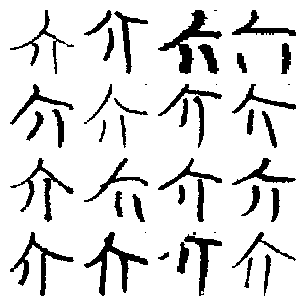 介介介介
介介介介
介介介介
介介介介